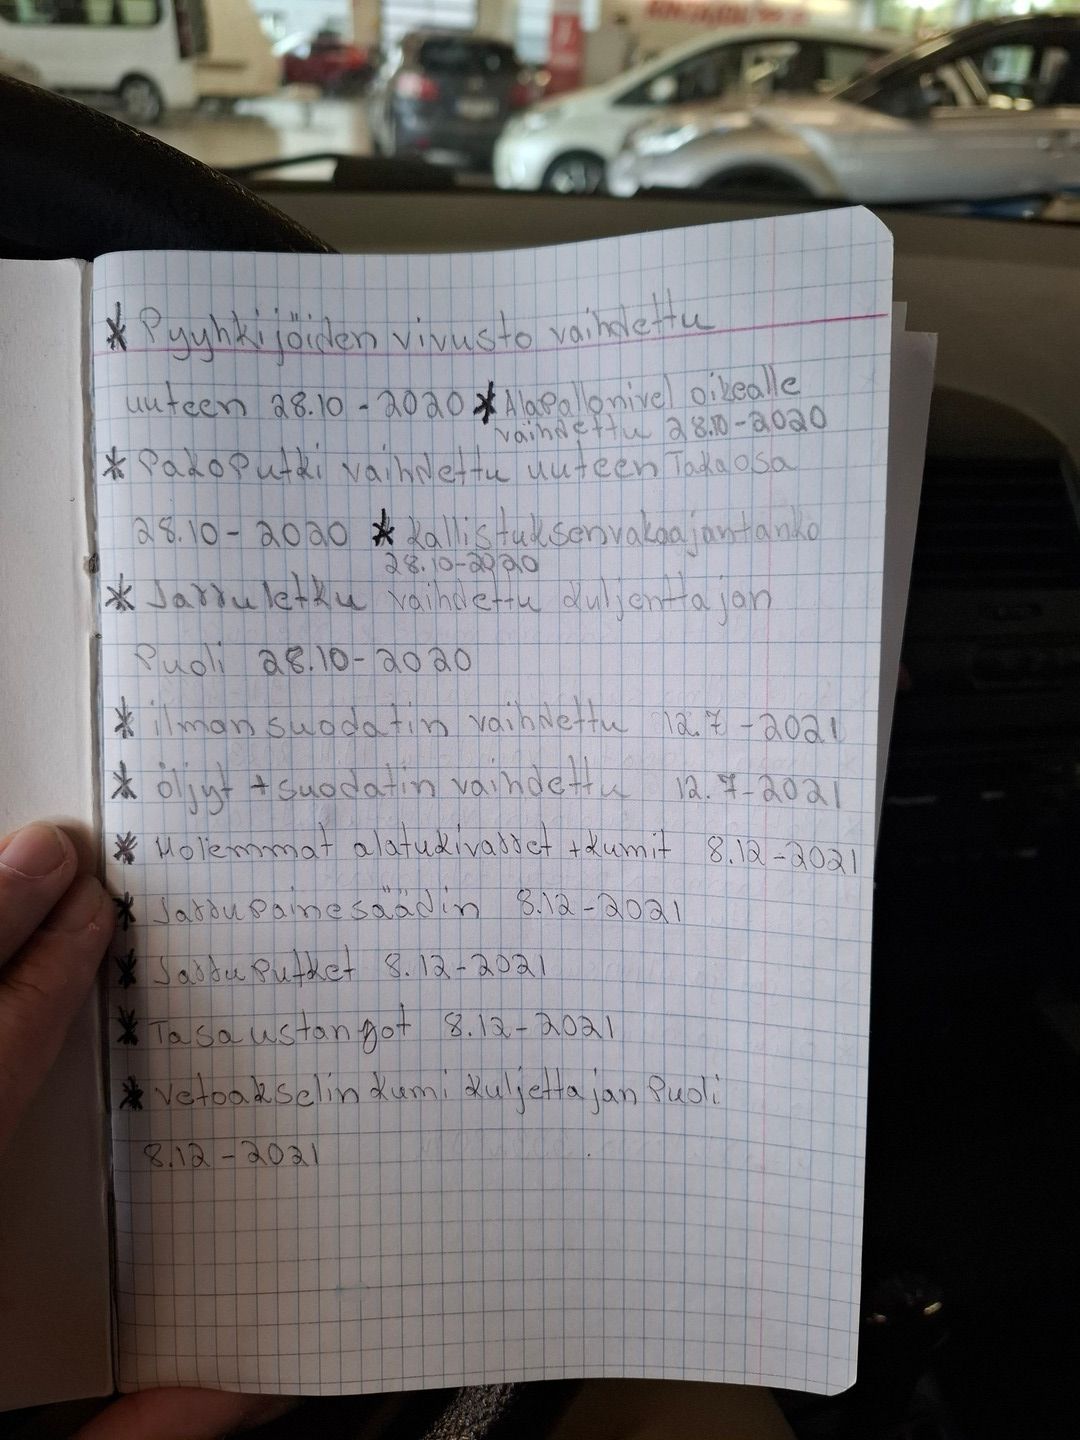 * Pyyhkijöiden vivusto vaihdettu
uuteen 28.10-2020 * Alapallonivel oikealle
vaihdettu 28.10-2020
* Pakoputki vaihdettu uuteen Takaosa
28.10-2020 * kallistuksenvakaajantanko
28.10-2020
* Jarruletku vaihdettu kuljenttajan
Puoli 28.10-2020
* ilmansuodatin vaihdettu 12.7-2021
* öljyt + suodatin vaihdettu 12.7-2021
* Molemmat alatukivarret + kumit 8.12-2021
* Jarrupainesäädin 8.12-2021
* Jarruputket 8.12-2021
* Tasaustangot 8.12-2021
* Vetoakselin kumi kuljettajan Puoli
8.12-2021